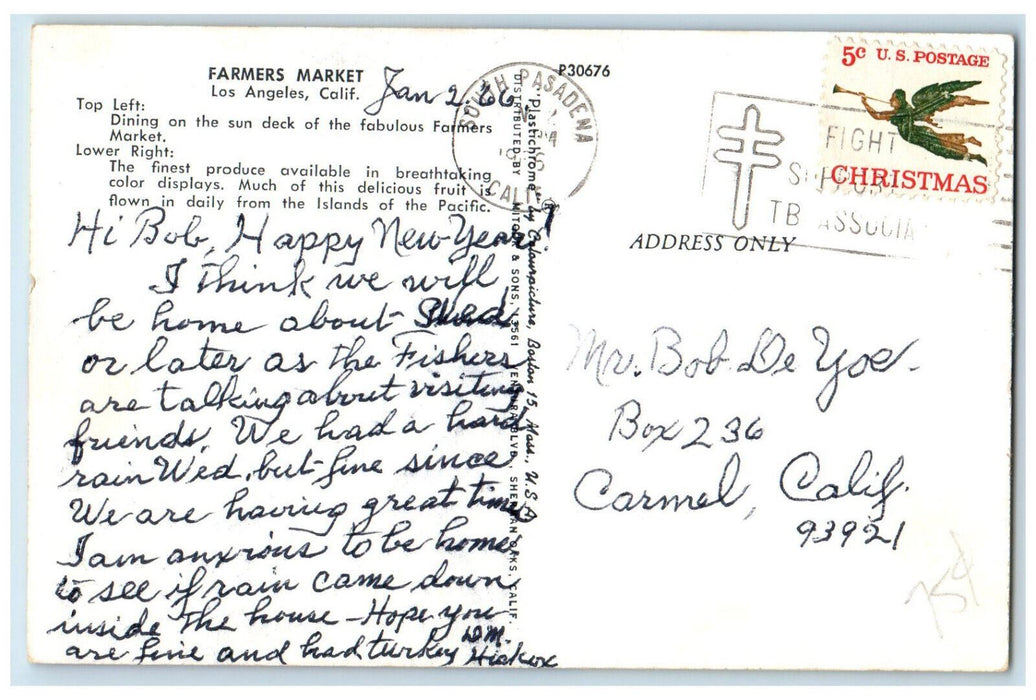 FARMERS MARKET
Los Angeles, Calif.
Jan 2, 66
P30676
Top Left:
Dining on the sun deck of the fabulous Farmers
Market.
Lower Right:
The finest produce available in breathtaking
color displays. Much of this delicious fruit is
flown in daily from the Islands of the Pacific.
Hi Bob, Happy New Year!
I think we will
be home about Wed
or later as the Fishers
are talking about visiting
friends. We had a hard
rain Wed. but fine since
We are having great time
I am anxious to be home
to see if rain came down
inside the house - Hope you
are fine and had turkey
D.M.
Hickox
"Plastichrome" ® by Colourpicture, Boston 15, Mass., U.S.A.
DISTRIBUTED BY MITOCK & SONS, 13561 VENTURA BLVD., SHERMAN OAKS, CALIF.
SOUTH PASADENA
CALIF
FIGHT
TB ASSOCIA
5c U.S. POSTAGE
CHRISTMAS
ADDRESS ONLY
Mr. Bob De Yoe.
Box 236
Carmel, Calif.
93921